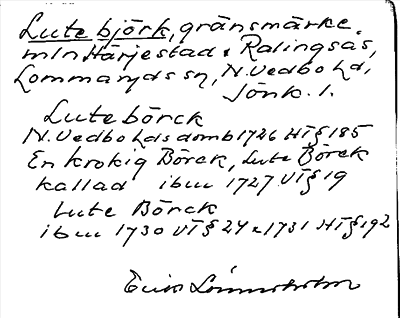 Lute björk, gränsmärke
mln Härjestad & Ralingsås,
Lommaryds sn, N. Vedbo hd,
Jönk. l.
Lute börck
N. Vedbo hds domb 1726 HT § 185
En krokig Börck, Lute Börck
kallad ibm 1727 VT § 19
Lute Börck
ibm 1730 VT § 24 & 1731 HT § 192